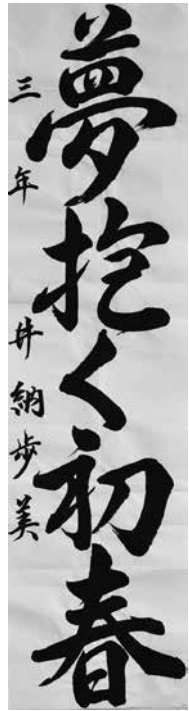 夢抱く初春
三年 井納歩美